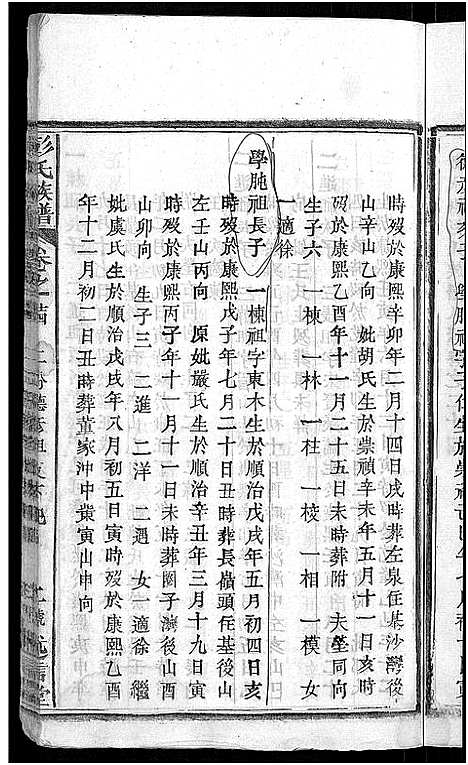 時歿於康熙辛卯年二月十四日戌時葬左泉在基沙灣後
山辛山乙向　妣胡氏生於崇禎辛未年五月十一日亥時
歿於康熙乙酉年十一月二十五日未時葬附　夫塋同向
生子六　一棟　一林　一柱　一梭　一相　一模　女
一適徐
學胣祖長子　一棟祖字東木生於順治戊戌年五月初四日亥
時歿於康熙戊子年七月二十日丑時葬長嶺頭住基後山
左壬山丙向　原妣嚴氏生於順治辛丑年三月十九日寅
時歿於康熙丙子年十一月十一日未時葬圈子灣後山酉
山卯向　生子三　二進　二洋　二遇　女一適徐王繼
妣虞氏生於順治戊戌年八月初五日寅時歿於康熙乙酉
年十二月初二日丑時葬董家沖中業寅山申向
彭氏族譜　卷之
信堂